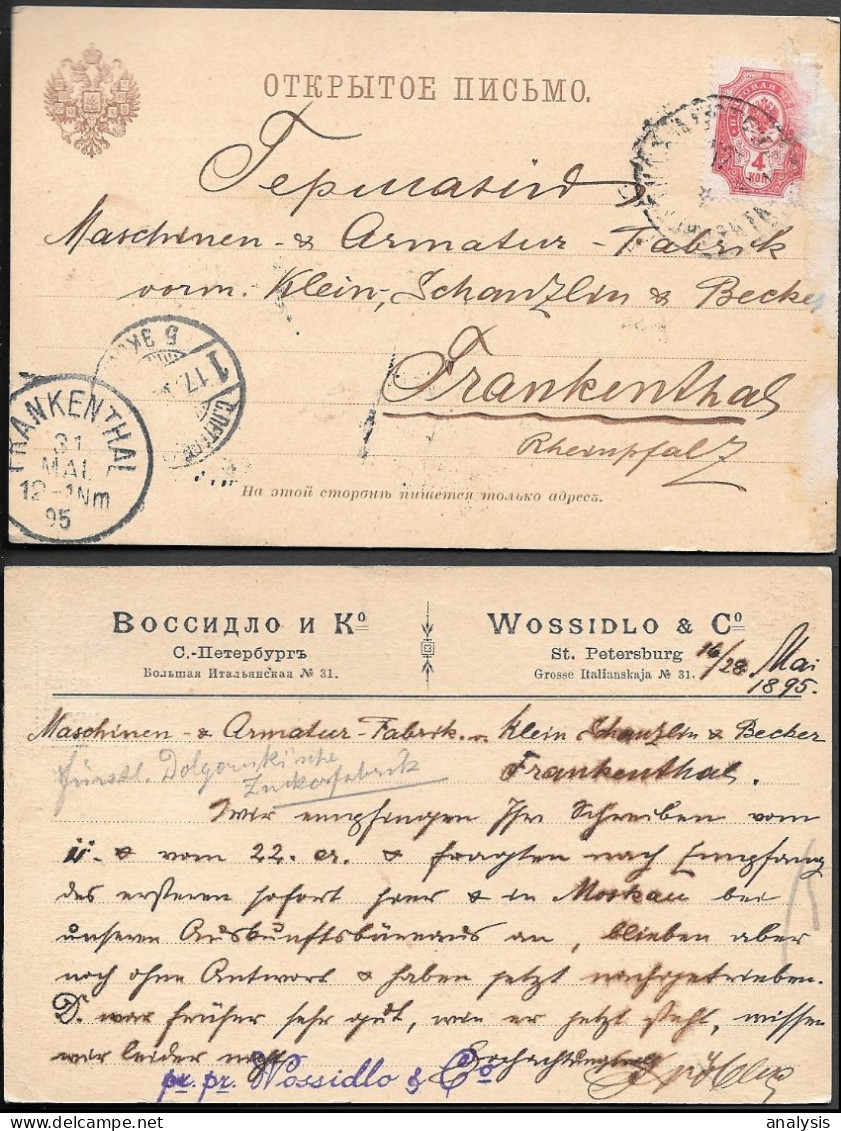 ОТКРЫТОЕ ПИСЬМО.
4
КОП
Германія
Maschinen- & Armatur-Fabrik
vorm. Klein, Schanzlin & Becker
Frankenthal
Rheinpfalz
5 ЭКСП
1
17.
С.ПЕТЕРБ
FRANKENTHAL
31
MAI
12-1Nm
95
На этой сторонѣ пишется только адресъ.
Воссидло и Ко
С.-Петербургъ
Большая Итальянская № 31.
Wossidlo & Co
St. Petersburg
Grosse Italianskaja № 31.
16/28 Mai
1895.
Maschinen- & Armatur-Fabrik v. Klein Schanzlin & Becker
Frankenthal.
fürstl. Dolgorukische
Zuckerfabrik
Wir empfingen Ihr Schreiben vom
& vom 22. cr. & fragten nach Empfang
des ersteren sofort hier & in Moskau bei
unseren Auskunftsbüreaus an, blieben aber
noch ohne Antwort & haben jetzt nachgetrieben.
D. war früher sehr gut, wie er jetzt steht, wissen
wir leider nicht.
Hochachtungsvoll
pr. pr. Wossidlo & Co
analysis
delcampe.net